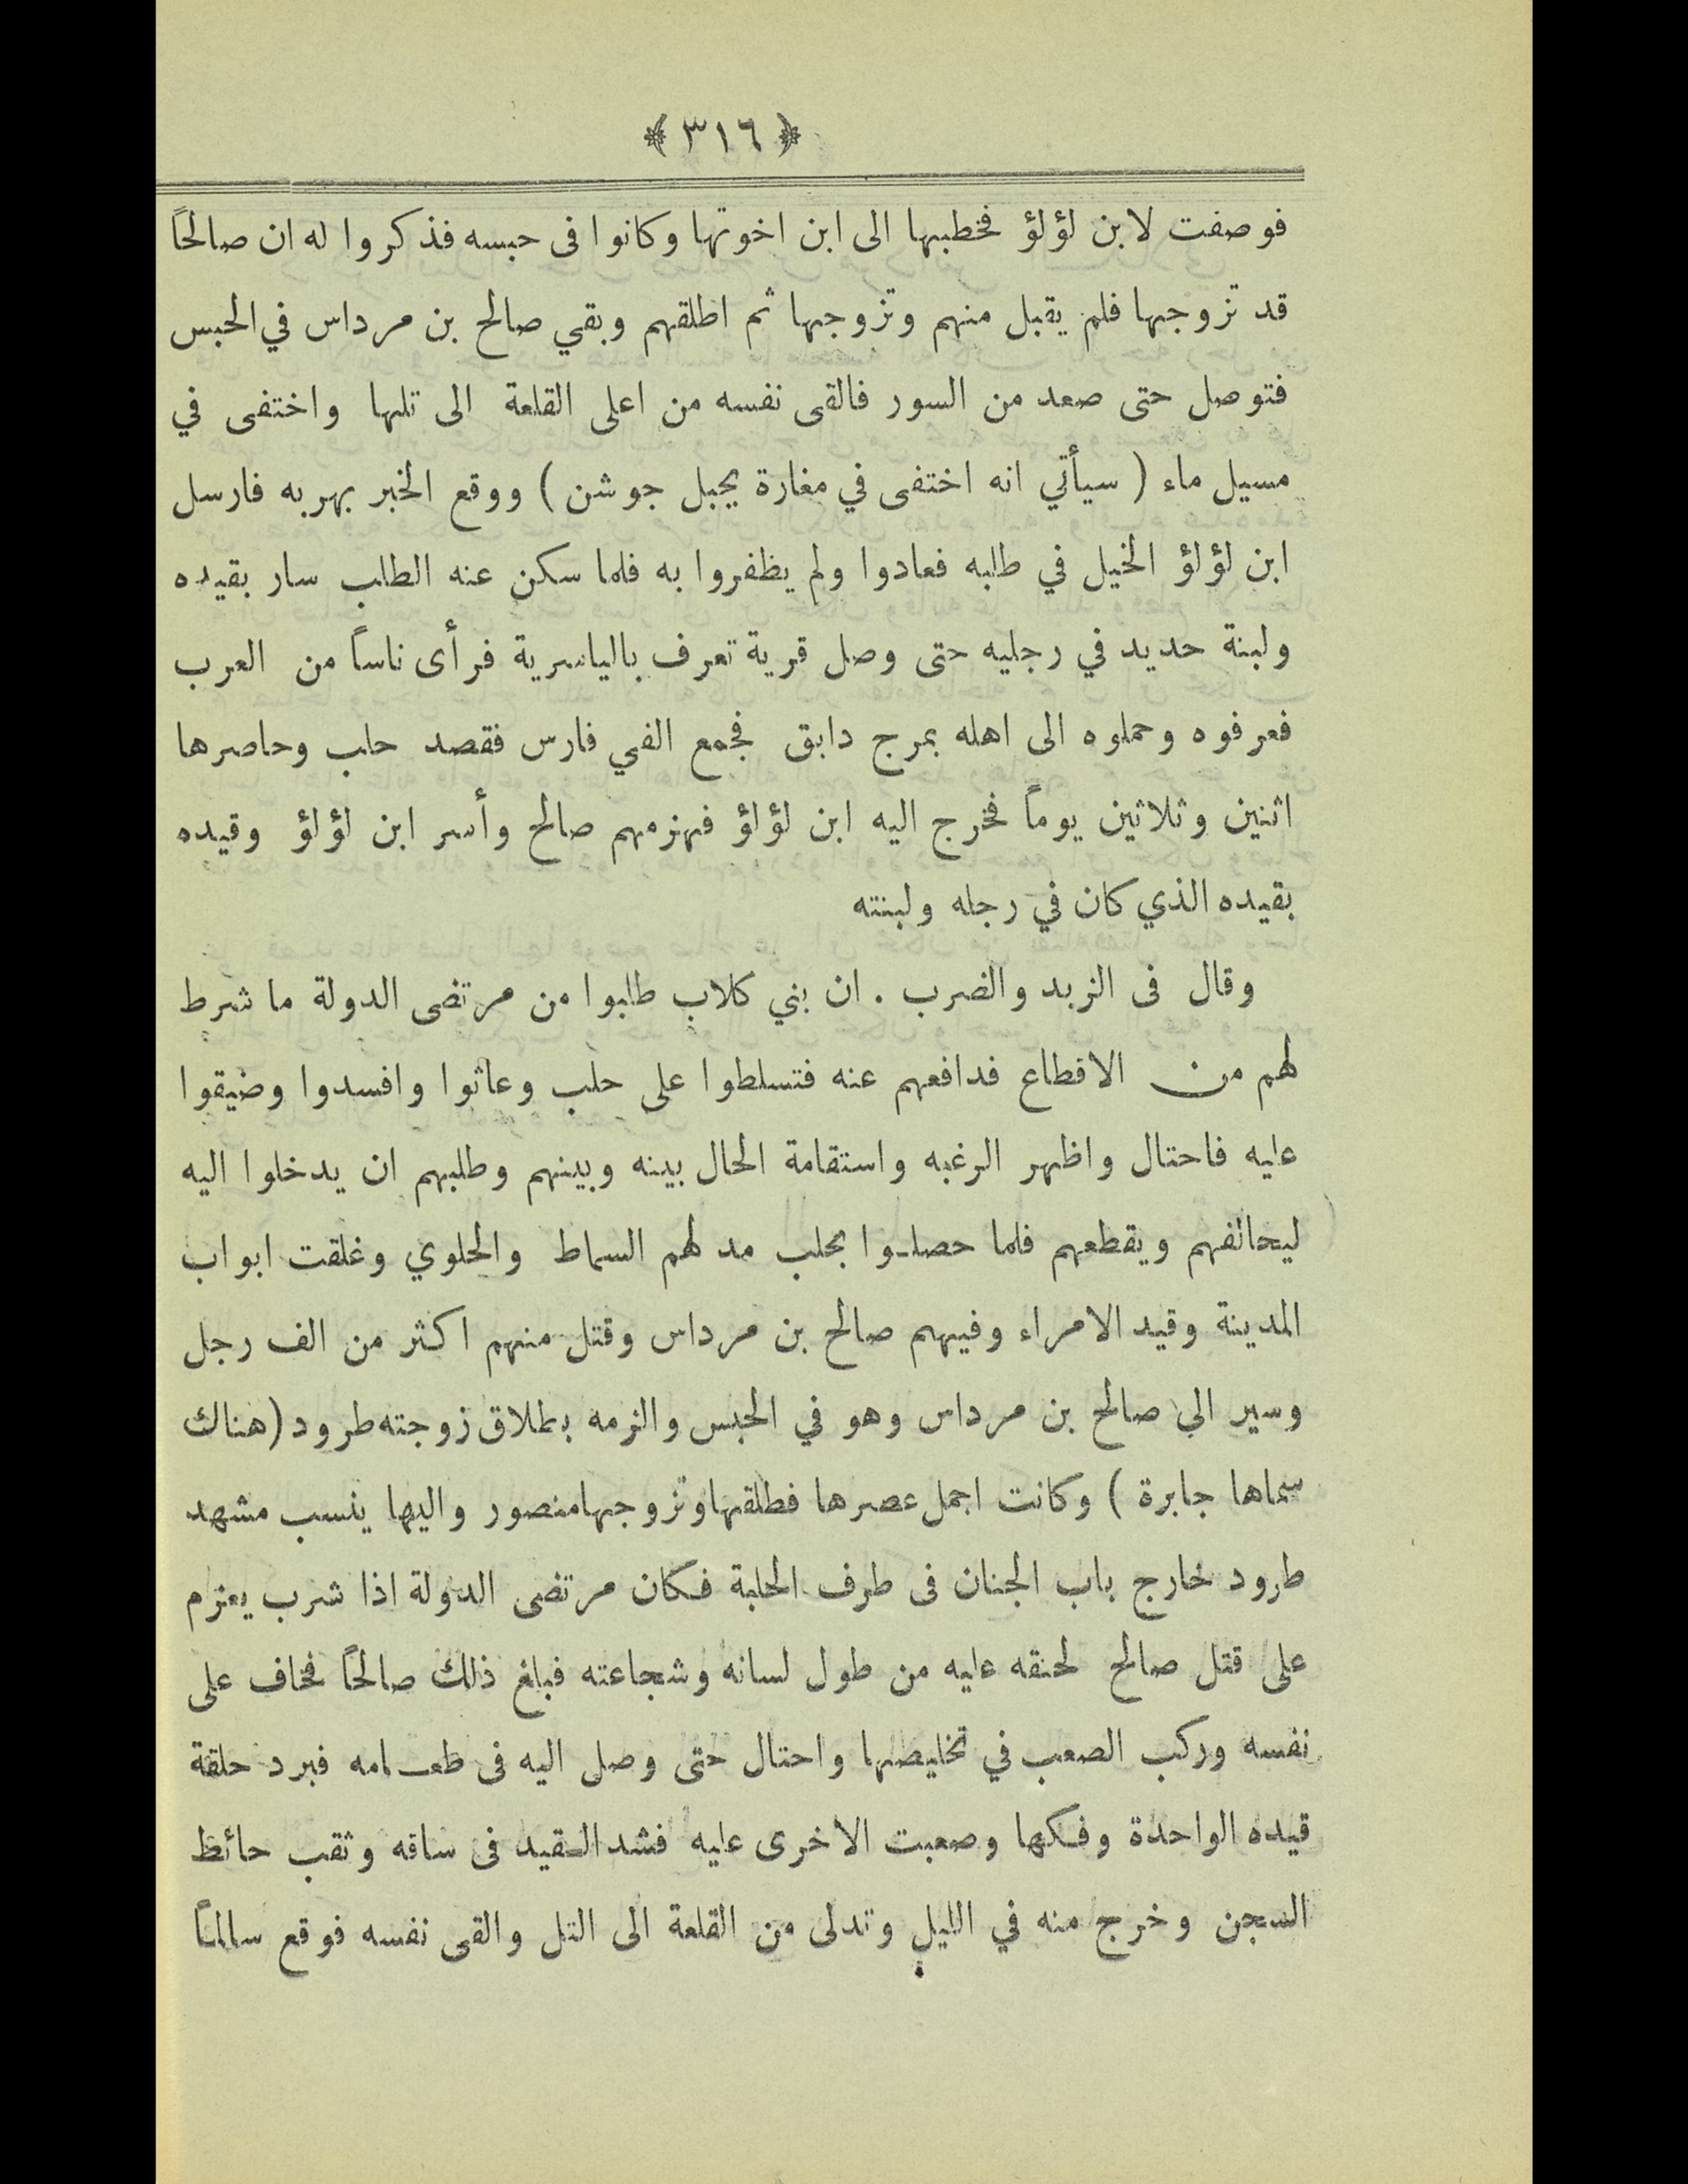 ﴿ ٣١٦ ﴾
فوصفت لابن لؤلؤ فخطبها الى ابن اخوتها وكانوا فى حبسه فذكروا له ان صالحاً
قد تزوجها فلم يقبل منهم وتزوجها ثم اطلقهم وبقي صالح بن مرداس في الحبس
فتوصل حتى صعد من السور فالقى نفسه من اعلى القلعة الى تلها واختفى في
مسيل ماء ( سيأتي انه اختفى في مغارة بجبل جوشن ) ووقع الخبر بهربه فارسل
ابن لؤلؤ الخيل في طلبه فعادوا ولم يظفروا به فلما سكن عنه الطلب سار بقيده
ولبنة حديد في رجليه حتى وصل قرية تعرف بالياسرية فرأى ناساً من العرب
فعرفوه وحملوه الى اهله بمرج دابق فجمع الفي فارس فقصد حلب وحاصرها
اثنين وثلاثين يوماً فخرج اليه ابن لؤلؤ فهزمهم صالح وأسر ابن لؤلؤ وقيده
بقيده الذي كان في رجله ولبنته
وقال فى الزبد والضرب . ان بني كلاب طلبوا من مرتضى الدولة ما شرط
لهم من الاقطاع فدافعهم عنه فتسلطوا على حلب وعاثوا وافسدوا وضيقوا
عليه فاحتال واظهر الرغبه واستقامة الحال بينه وبينهم وطلبهم ان يدخلوا اليه
ليحالفهم ويقطعهم فلما حصلوا بحلب مد لهم السماط والحلوي وغلقت ابواب
المدينة وقيد الامراء وفيهم صالح بن مرداس وقتل منهم اكثر من الف رجل
وسير الى صالح بن مرداس وهو في الحبس والزمه بطلاق زوجته طرود (هناك
سماها جابرة ) وكانت اجمل عصرها فطلقها وتزوجها منصور واليها ينسب مشهد
طرود خارج باب الجنان فى طرف الحلبة فكان مرتضى الدولة اذا شرب يعزم
على قتل صالح لحنقه عليه من طول لسانه وشجاعته فبلغ ذلك صالحاً فخاف على
نفسه وركب الصعب في تخليصها واحتال حتى وصل اليه فى طعامه فبرد حلقة
قيده الواحدة وفكها وصعبت الاخرى عليه فشد القيد فى ساقه وثقب حائط
السجن وخرج منه في الليل وتدلى من القلعة الى التل والقى نفسه فوقع سالماً